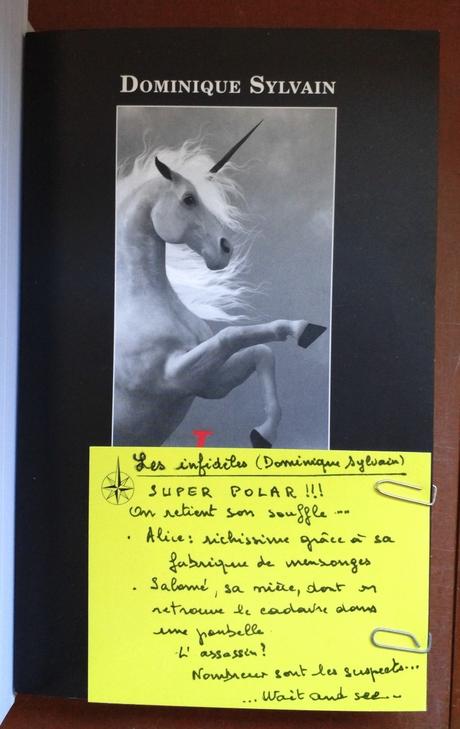 DOMINIQUE SYLVAIN
Les infidèles (Dominique Sylvain)
SUPER POLAR !!!
On retient son souffle ...
. Alice : richissime grâce à sa
fabrique de mensonges
. Salomé, sa nièce, dont on
retrouve le cadavre dans
une poubelle.
L'assassin ?
Nombreux sont les suspects...
... Wait and see...